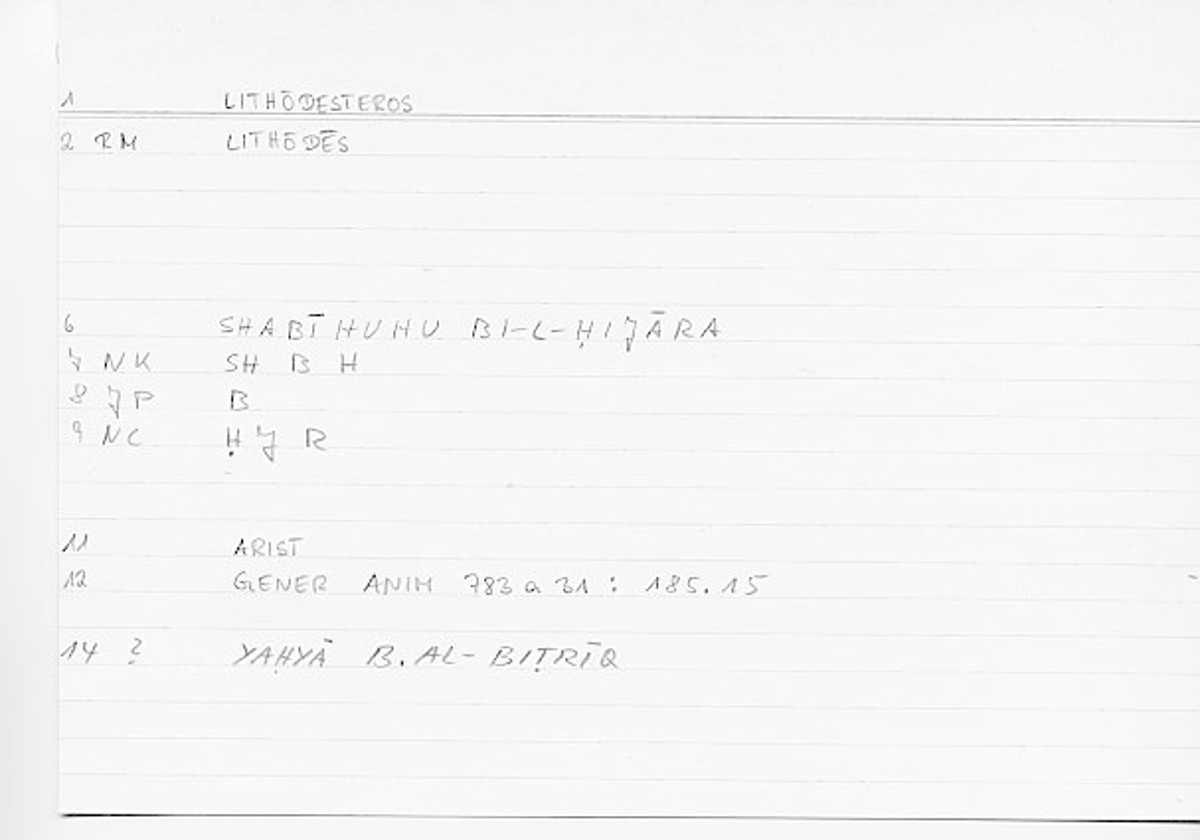 1 LITHŌDESTEROS
2 RM LITHŌDĒS
6 SHABĪHUHU BI-L-ḤIJĀRA
7 NK SH B H
8 JP B
9 NC Ḥ J R
11 ARIST
12 GENER ANIM 783 a 31 : 185.15
14 ? YAḤYĀ B. AL-BIṬRĪQ